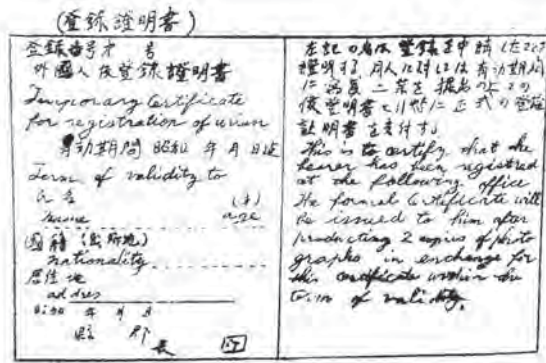 (登録證明書)
登録番号オ 号
外國人仮登録證明書
Temporary Certificate
for registration of
有効期間 昭和 年 月 日迄
Term of validity to
氏名
name age
國籍 (出所地)
nationality
居住地
address
昭和 年 月 日
縣 郡
長 印
左記の者は登録を申請したこと
證明する 同人に対しては有効期間
に寫眞二葉を提出
仮證明書と引換に正式の登録
証明書を交付す
This is to certify that the
bearer has been registred
at the following office
He formal Certificate will
be issued to him after
producting 2 copies of photo
graphs in exchange for
this certificate within the
term of validity.